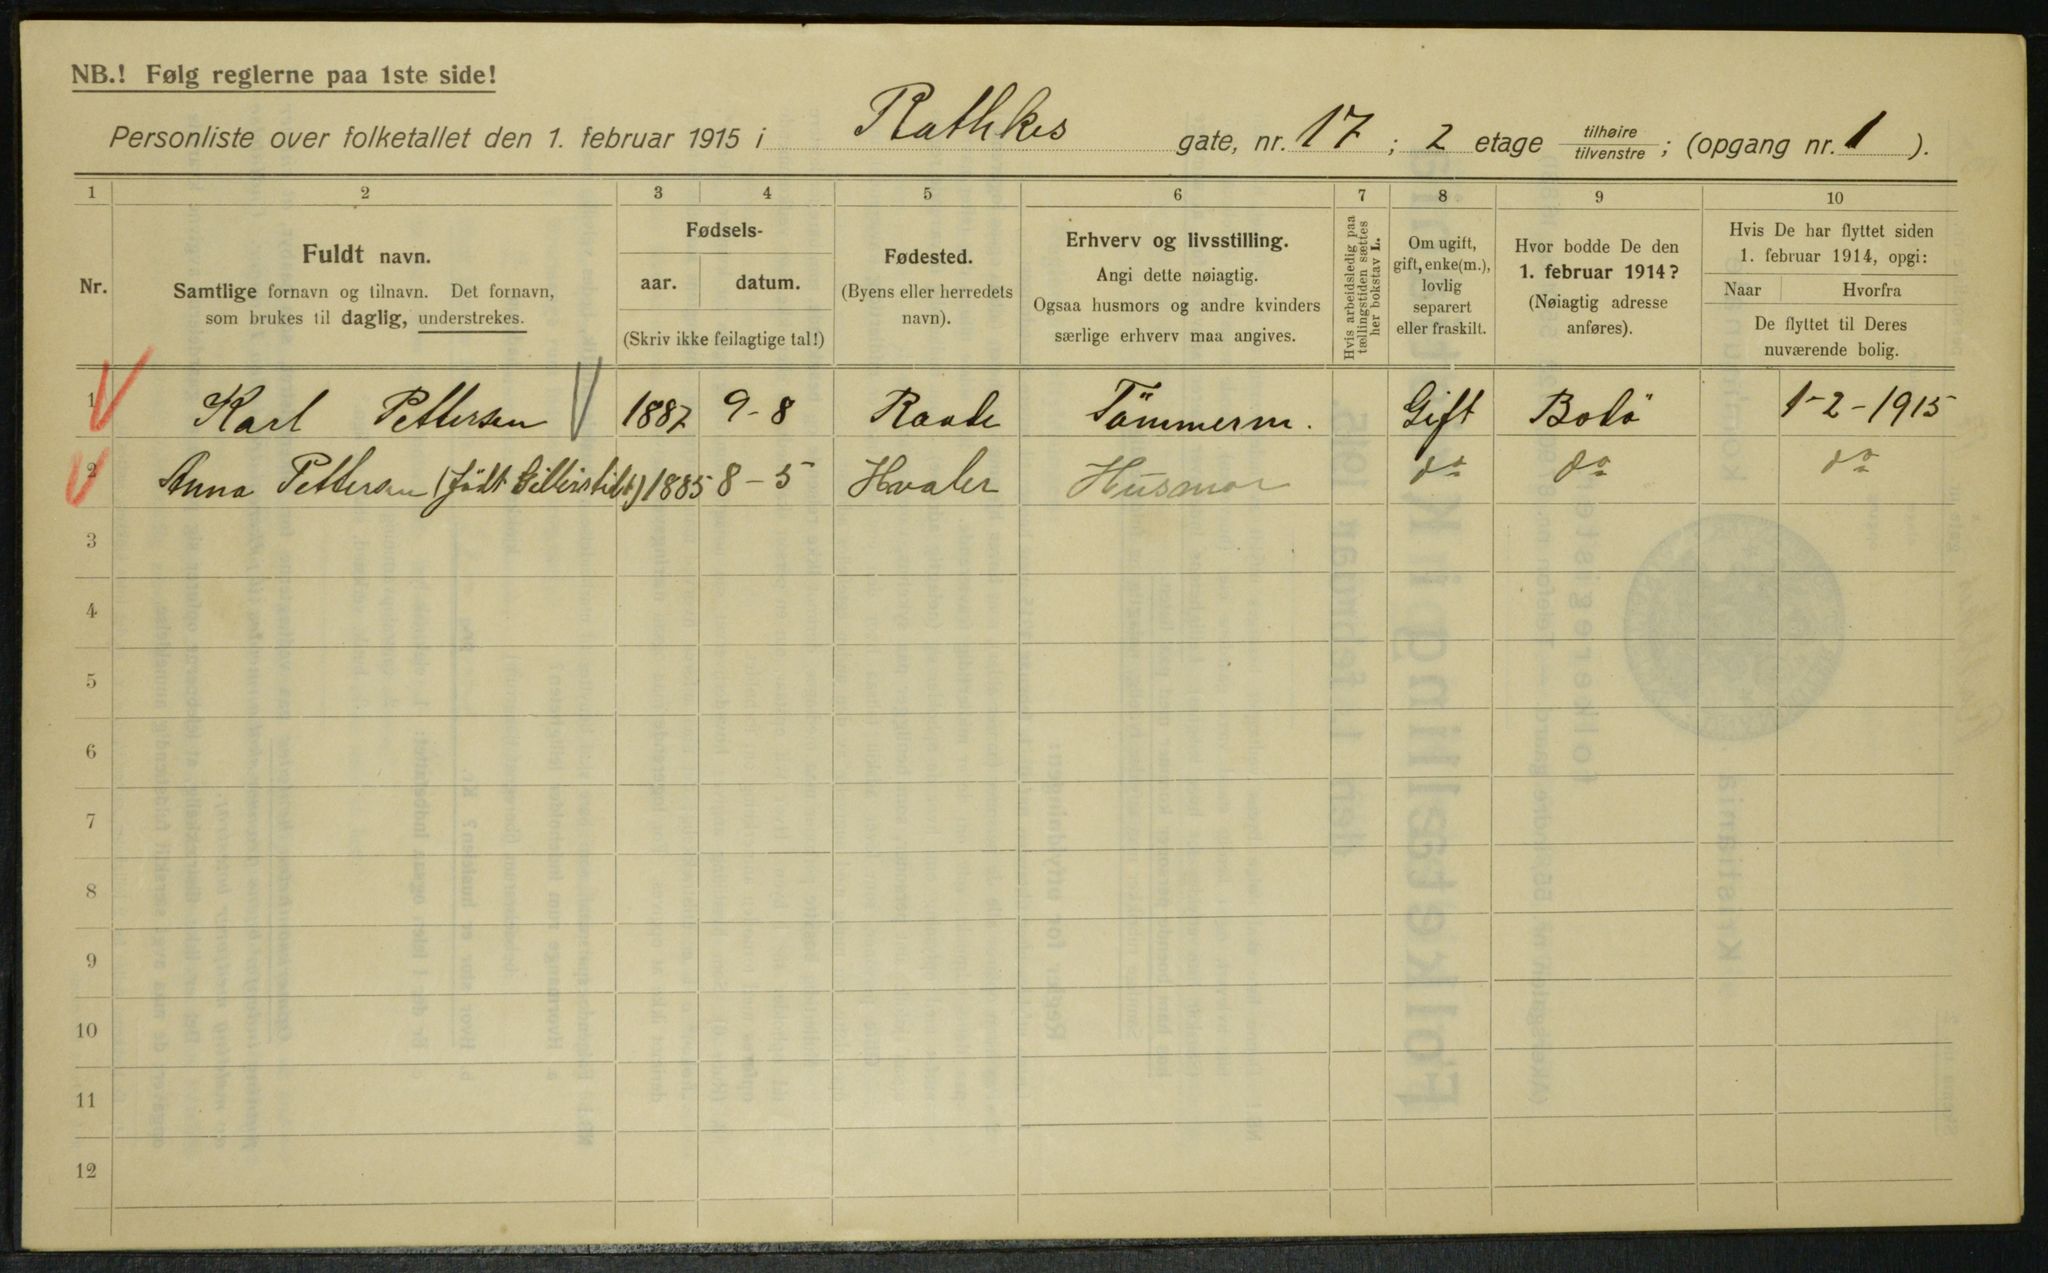 NB.! Følg reglerne paa 1ste side!
Personliste over folketallet den 1. februar 1915 i Rathkes gate, nr. 17 ; 2 etage tilhøire / tilvenstre ; (opgang nr. 1 ).
1 2 3 4 5 6 7 8 9 10
Nr.
Fuldt navn.
Samtlige fornavn og tilnavn. Det fornavn,
som brukes til daglig, understrekes.
Fødsels-
aar. datum.
(Skriv ikke feilagtige tal!)
Fødested.
(Byens eller herredets
navn).
Erhverv og livsstilling.
Angi dette nøiagtig.
Ogsaa husmors og andre kvinders
særlige erhverv maa angives.
Hvis arbeidsledig paa
tællingstiden sættes
her bokstav L.
Om ugift,
gift, enke(m.),
lovlig
separert
eller fraskilt.
Hvor bodde De den
1. februar 1914?
(Nøiagtig adresse
anføres).
Hvis De har flyttet siden
1. februar 1914, opgi:
Naar Hvorfra
De flyttet til Deres
nuværende bolig.
1 Karl Pettersen 1887 9-8 Raade Tömmerm. Gift Bodö 1-2-1915
2 Anna Pettersen (födt 1885 8-5 Hvaler Husmor do do do
3
4
5
6
7
8
9
10
11
12